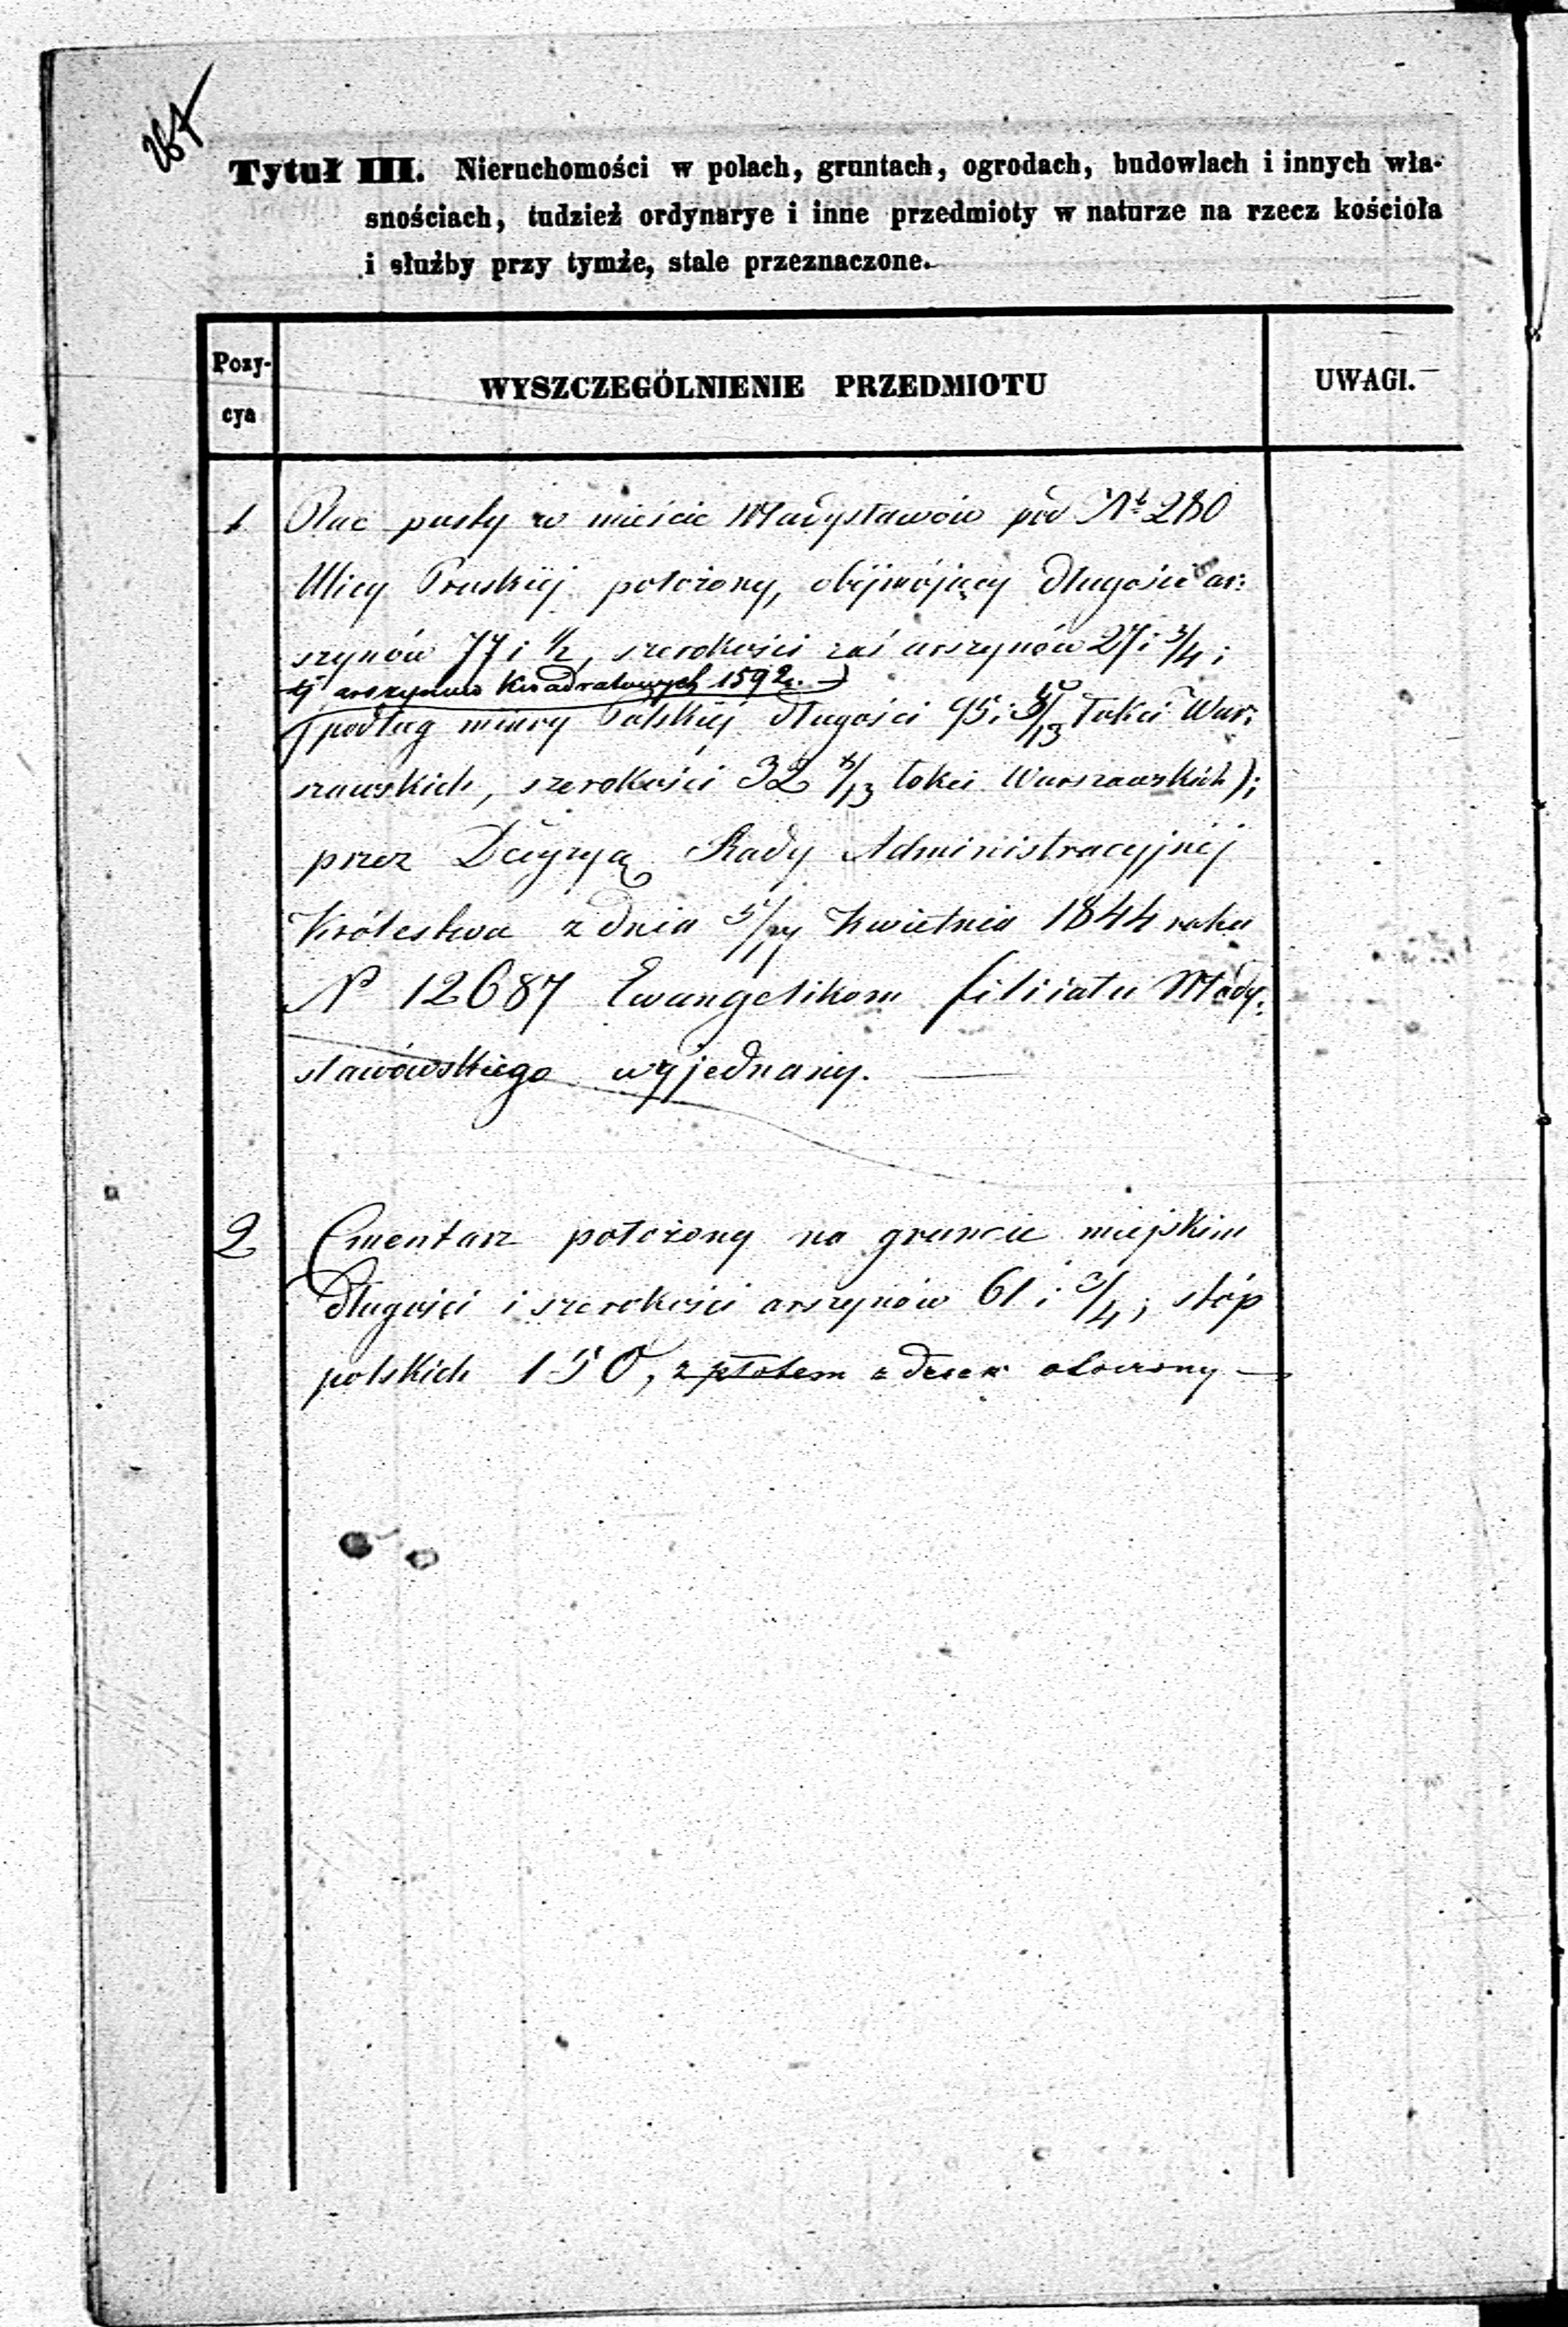 267
Tytuł III. Nieruchomości w polach, gruntach, ogrodach, budowlach i innych wła-
snościach, tudzież ordynarye i inne przedmioty w naturze na rzecz kościoła
i służby przy tymże, stale przeznaczone.
Pozy-
cya
WYSZCZEGÓLNIENIE PRZEDMIOTU
UWAGI.
1 Plac pusty w mieście Władysławów pod Nr 280
Ulicy Pruskiéj położony, obijmójący długości ar:
szynów 77 i 1/2, szerokości zaś arszynów 27 i 3/4;
tj arszynów kwadratowych 1592
(podług miary Polskiéj długości 95 i 5/13 łokci War:
szawskich, szerokości 32 4/13 łokci Warszawskich);
przez Decyzyą Rady Administracyjnéj
Królestwa z dnia 5/17 Kwietnia 1844 roku
No 12687 Ewangelikom filiiatu Włady:
sławówskiego wyjednany.
2 Cmentarz położony na gruncie miejskim
długości i szerokości arszynów 61 i 3/4; stóp
polskich 150, z płotem z desek otoczony